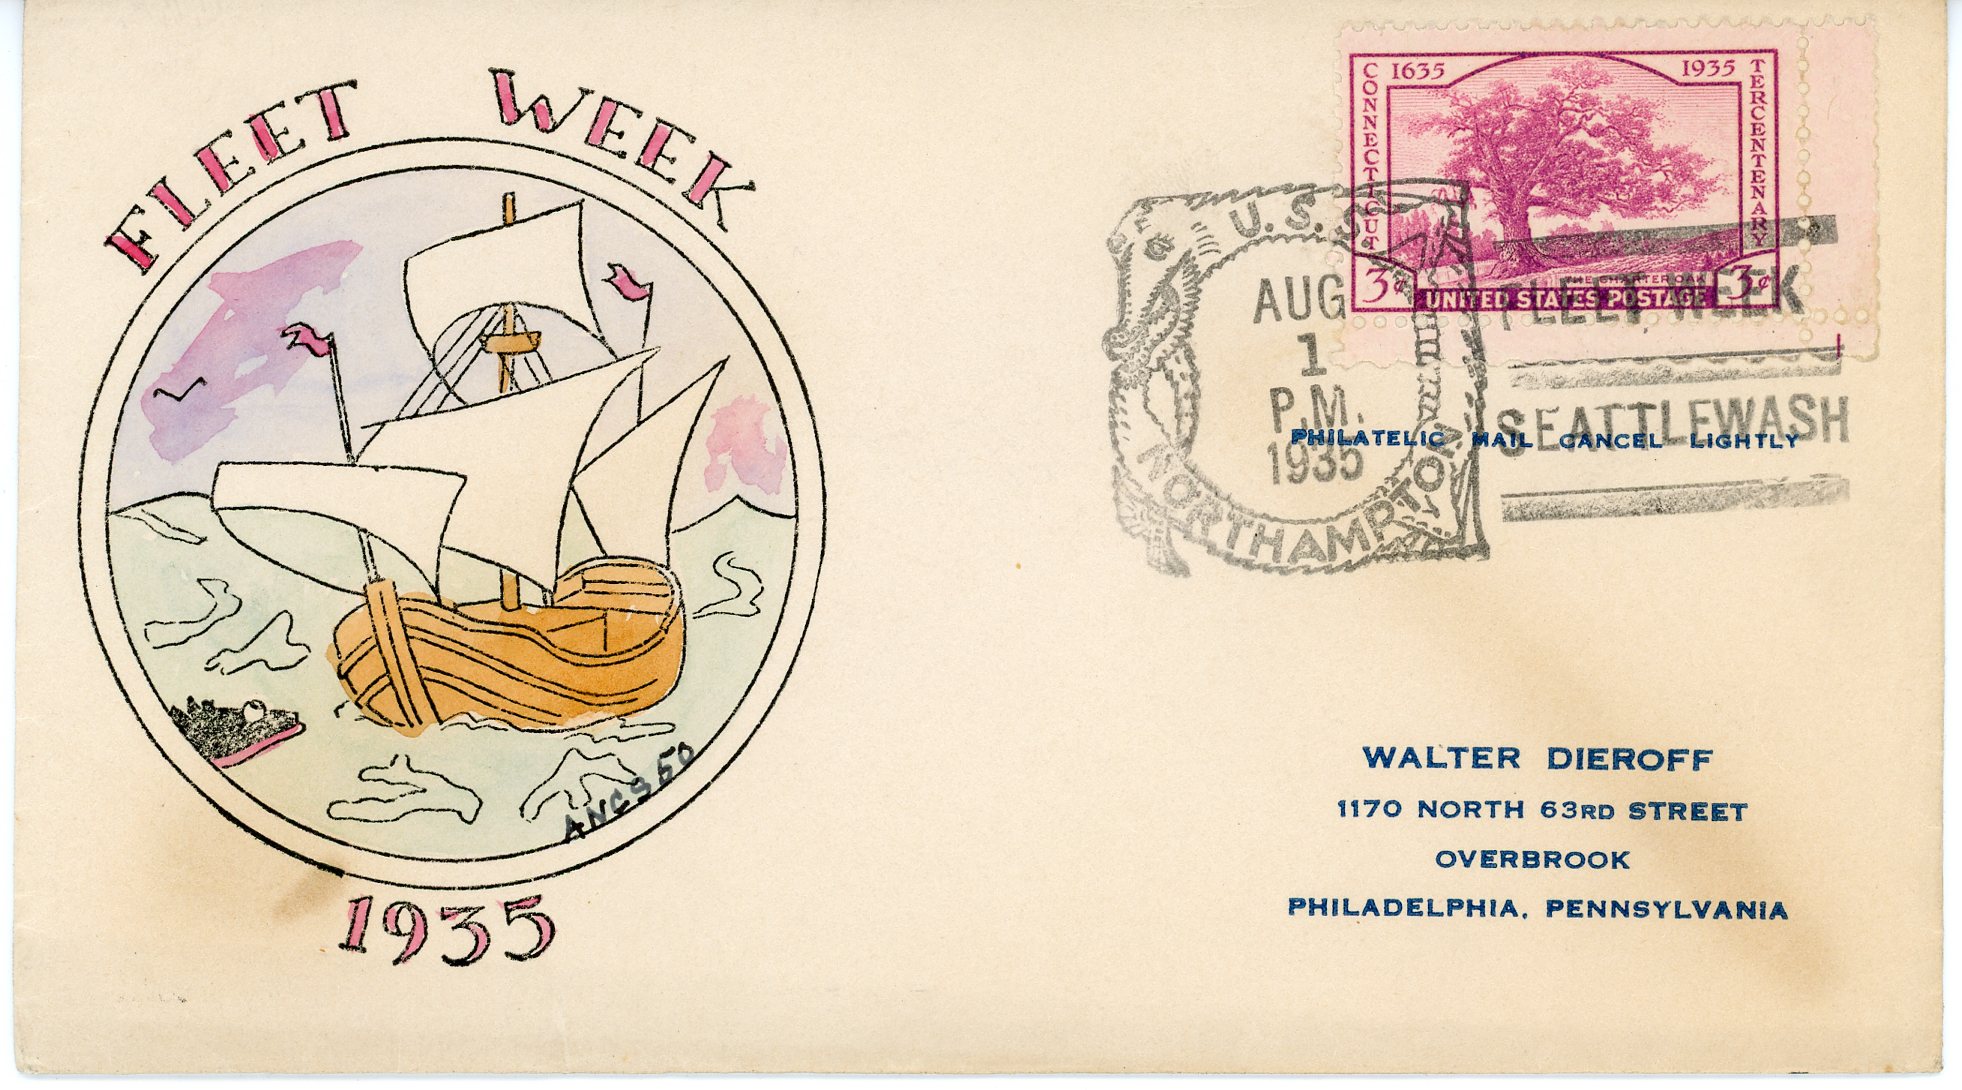 FLEET WEEK
1935
ANCS 50
1635 1935
CONNECTICUT
TERCENTENARY
THE CHARTER OAK
3¢ 3¢
UNITED STATES POSTAGE
U.S.S.
AUG
1
P.M.
1935
NORTHAMPTON
FLEET WEEK
SEATTLE WASH
PHILATELIC MAIL CANCEL LIGHTLY
WALTER DIEROFF
1170 NORTH 63RD STREET
OVERBROOK
PHILADELPHIA, PENNSYLVANIA